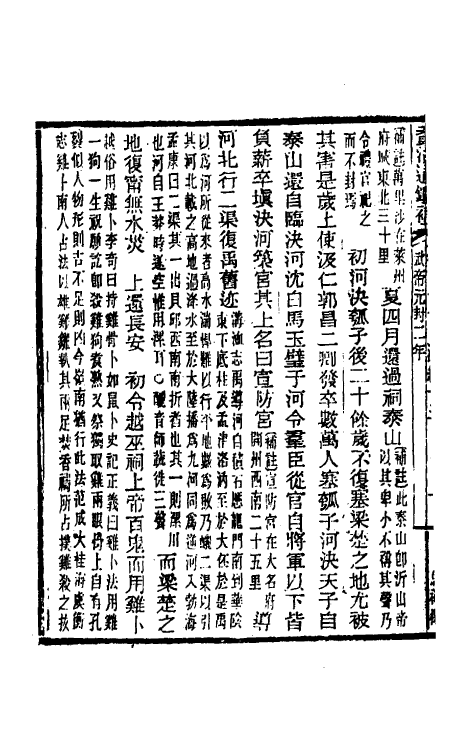 資治通鑑補 武帝元封二年
補註萬里沙在萊州
府城東北三十里 夏四月還過祠泰山 補註此泰山卽沂山帝
以其卑小不稱其聲乃
令禮官祀之
而不封焉 初河決瓠子後二十餘歲不復塞梁楚之地尤被
其害是歲上使汲仁郭昌二卿發卒數萬人塞瓠子河決天子自
泰山還自臨決河沈白馬玉璧于河令羣臣從官自將軍以下皆
負薪卒塡決河築宮其上名曰宣防宮 補註宣防宮在大名府
開州西南二十五里 導
河北行二渠復禹舊迹 溝洫志禹導河自積石歷龍門南到華陰
東下底柱及孟津洛汭至於大伾於是禹
以爲河所從來者高水湍悍難以行平地數爲敗乃釃二渠以引
其河北載之高地過洚水至於大陸播爲九河同爲逆河入勃海
孟康曰二渠其一出貝邱西南南折者也其一則漯川
也河自王莽時遂空惟用漯耳○釃音師疏徙二聲 而梁楚之
地復甯無水災 上還長安 初令越巫祠上帝百鬼而用雞卜
越俗用雞卜李奇曰持雞骨卜如鼠卜史記正義曰雞卜法用雞
一狗一生祝願訖卽殺雞狗煮熟又祭獨取雞兩眼骨上自有孔
裂似人物形則吉不足則凶今嶺南猶行此法范成大桂海虞衡
志雞卜南人占法以雄雞雛執其兩足焚香禱所占撲雞殺之拔